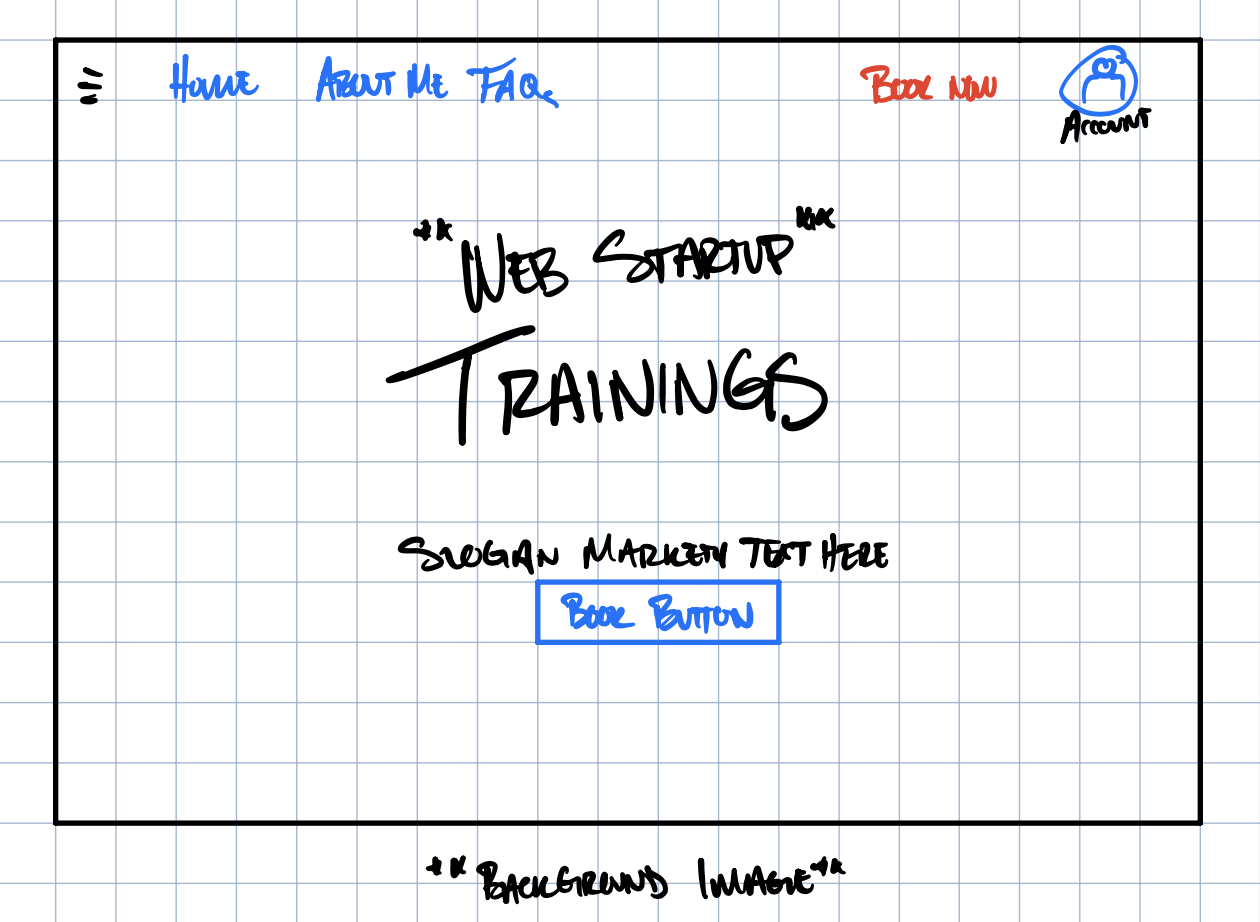 HOME ABOUT ME FAQ BOOK NOW
ACCOUNT
**WEB STARTUP**
TRAININGS
SLOGAN TEXT HERE
BOOK BUTTON
**BACKGROUND IMAGE**